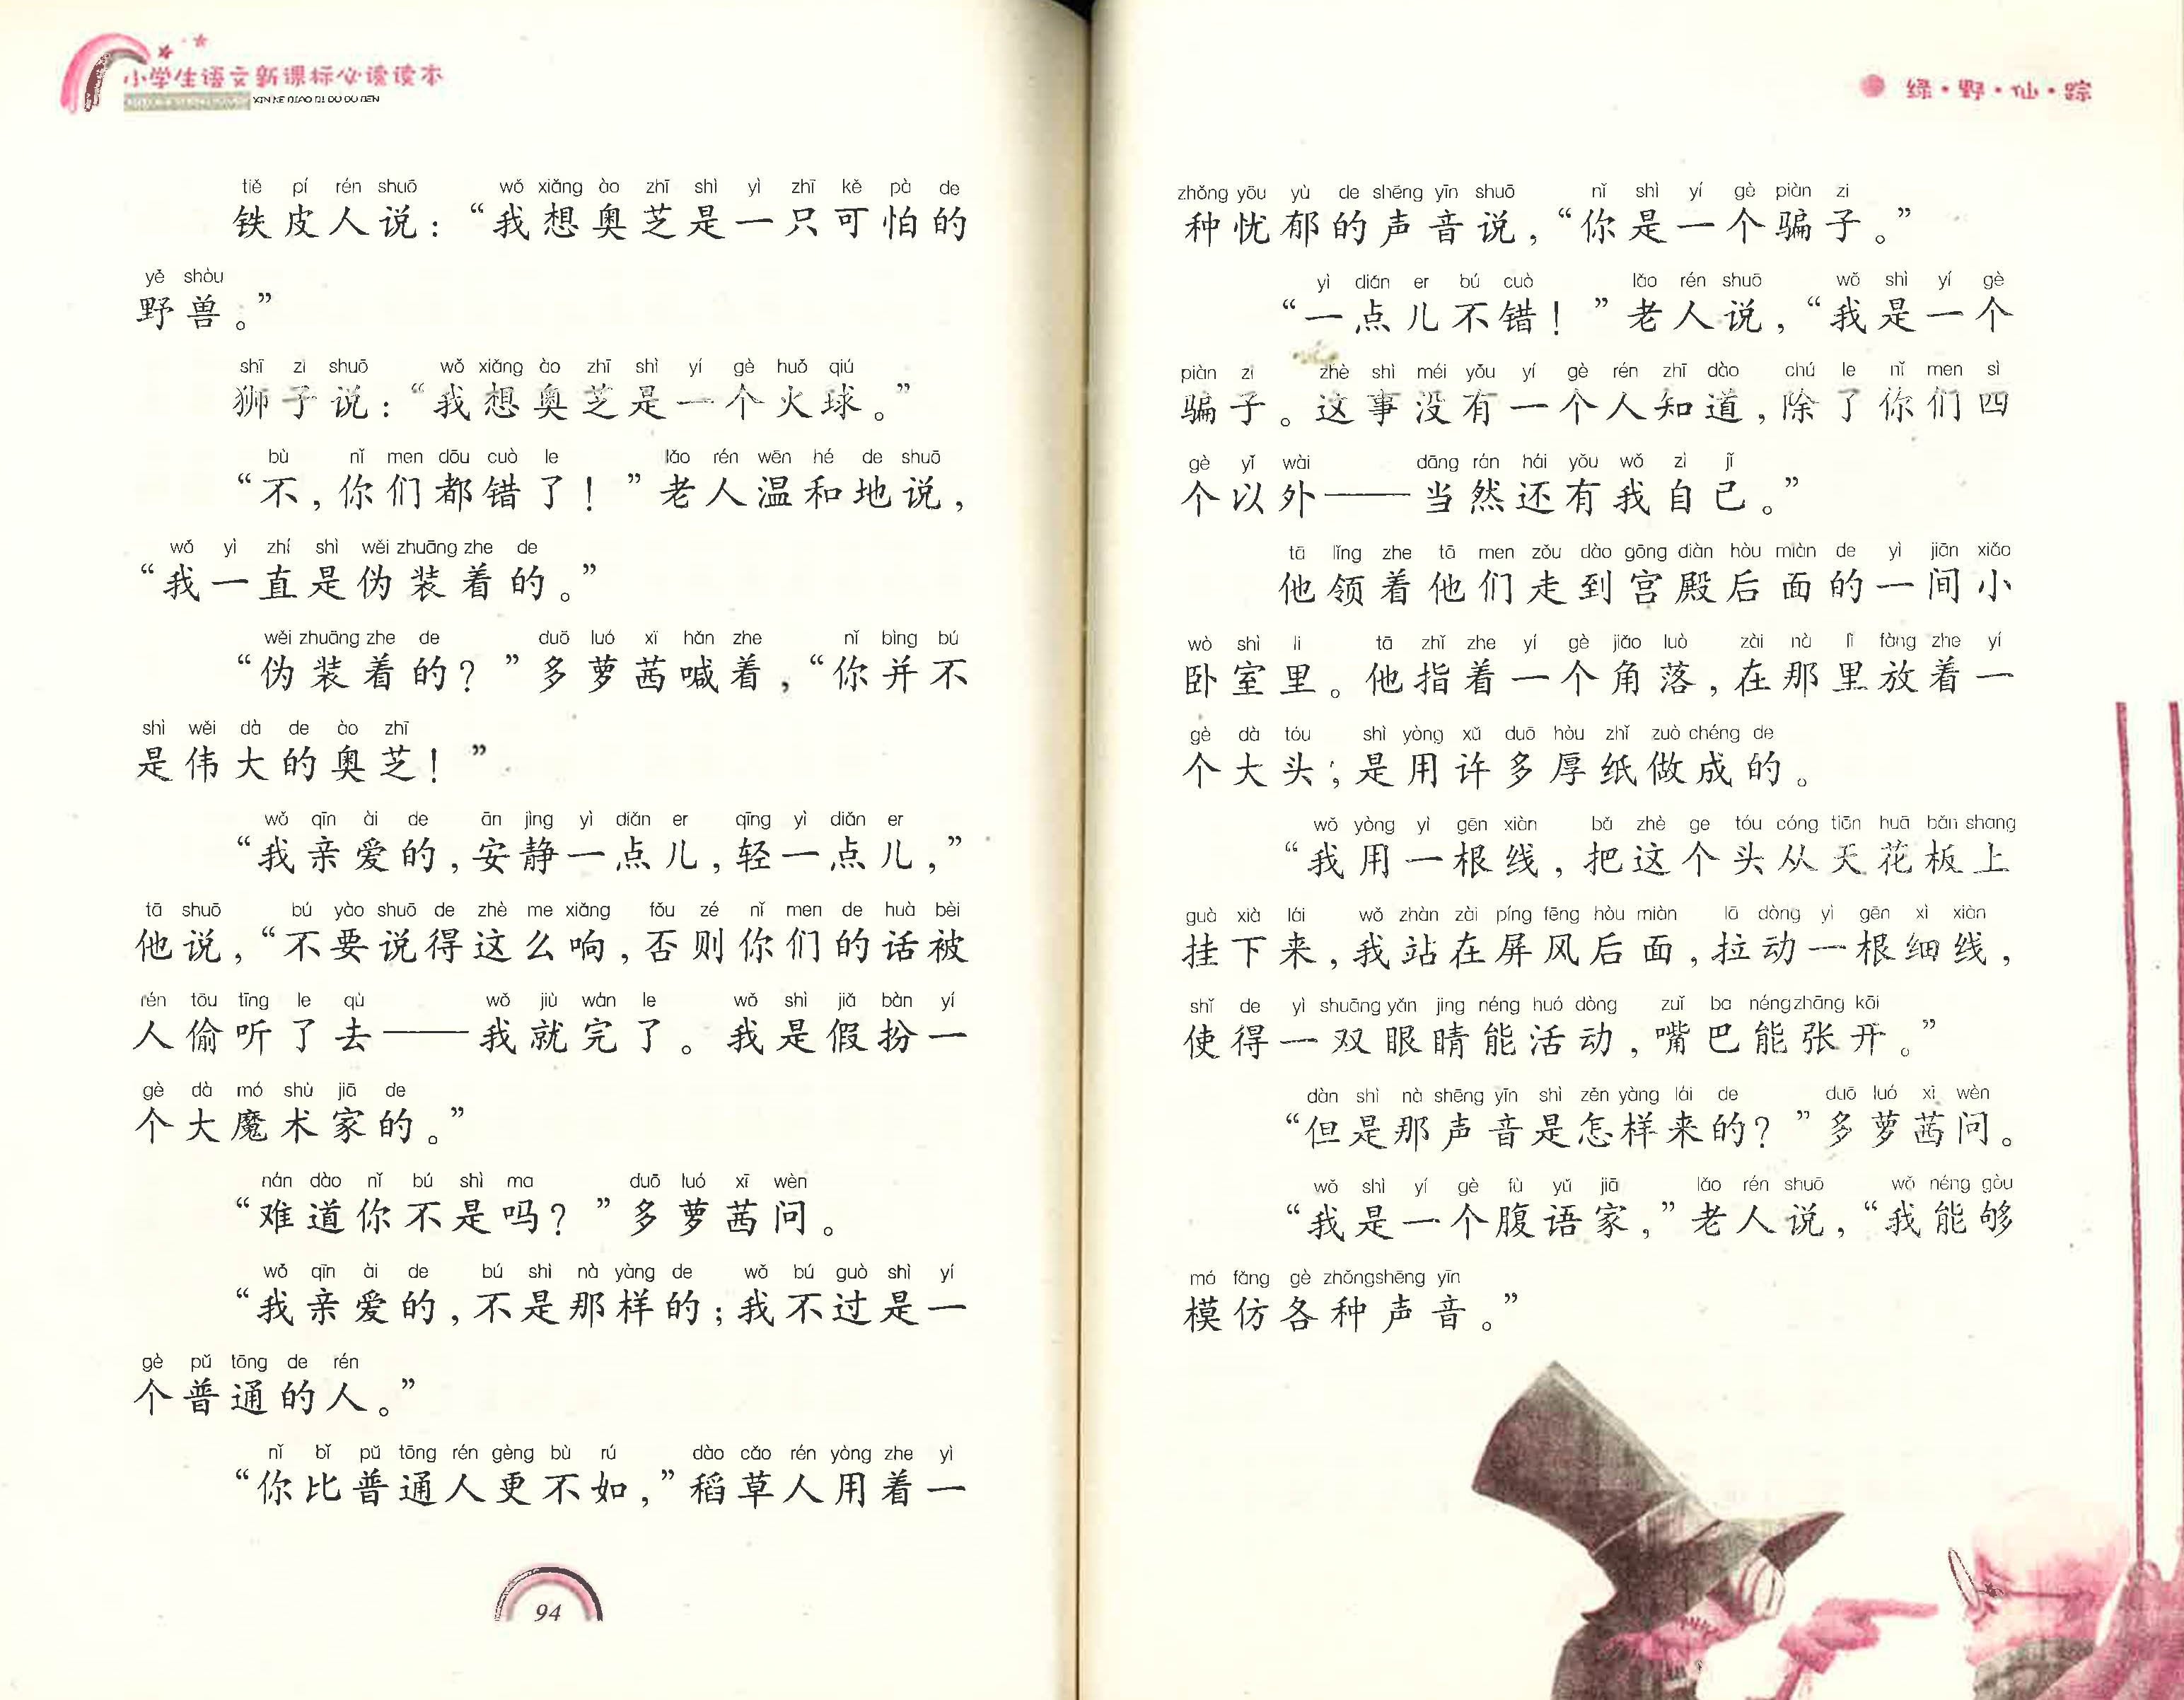 小学生语文新课标必读读本
XIN KE BIAO BI DU DU BEN
tiě pí rén shuō wǒ xiǎng ào zhī shì yì zhī kě pà de
铁皮人说：“我想奥芝是一只可怕的
yě shòu
野兽。”
shī zi shuō wǒ xiǎng ào zhī shì yí gè huǒ qiú
狮子说：“我想奥芝是一个火球。”
bù nǐ men dōu cuò le lǎo rén wēn hé de shuō
“不，你们都错了！”老人温和地说，
wǒ yì zhí shì wěi zhuāng zhe de
“我一直是伪装着的。”
wěi zhuāng zhe de duō luó xī hǎn zhe nǐ bìng bú
“伪装着的？”多萝茜喊着，“你并不
shì wěi dà de ào zhī
是伟大的奥芝！”
wǒ qīn ài de ān jìng yì diǎn er qīng yì diǎn er
“我亲爱的，安静一点儿，轻一点儿，”
tā shuō bú yào shuō de zhè me xiǎng fǒu zé nǐ men de huà bèi
他说，“不要说得这么响，否则你们的话被
rén tōu tīng le qù wǒ jiù wán le wǒ shì jiǎ bàn yí
人偷听了去——我就完了。我是假扮一
gè dà mó shù jiā de
个大魔术家的。”
nán dào nǐ bú shì ma duō luó xī wèn
“难道你不是吗？”多萝茜问。
wǒ qīn ài de bú shì nà yàng de wǒ bú guò shì yí
“我亲爱的，不是那样的；我不过是一
gè pǔ tōng de rén
个普通的人。”
nǐ bǐ pǔ tōng rén gèng bù rú dào cǎo rén yòng zhe yì
“你比普通人更不如，”稻草人用着一
94
绿·野·仙·踪
zhǒng yōu yù de shēng yīn shuō nǐ shì yí gè piàn zi
种忧郁的声音说，“你是一个骗子。”
yì diǎn er bú cuò lǎo rén shuō wǒ shì yí gè
“一点儿不错！”老人说，“我是一个
piàn zi zhè shì méi yǒu yí gè rén zhī dào chú le nǐ men sì
骗子。这事没有一个人知道，除了你们四
gè yǐ wài dāng rán hái yǒu wǒ zì jǐ
个以外——当然还有我自己。”
tā lǐng zhe tā men zǒu dào gōng diàn hòu miàn de yì jiān xiǎo
他领着他们走到宫殿后面的一间小
wò shì li tā zhǐ zhe yí gè jiǎo luò zài nà lǐ fàng zhe yí
卧室里。他指着一个角落，在那里放着一
gè dà tóu shì yòng xǔ duō hòu zhǐ zuò chéng de
个大头；是用许多厚纸做成的。
wǒ yòng yì gēn xiàn bǎ zhè ge tóu cóng tiān huā bǎn shang
“我用一根线，把这个头从天花板上
guà xià lái wǒ zhàn zài píng fēng hòu miàn lā dòng yì gēn xì xiàn
挂下来，我站在屏风后面，拉动一根细线，
shǐ de yì shuāng yǎn jing néng huó dòng zuǐ ba néng zhāng kāi
使得一双眼睛能活动，嘴巴能张开。”
dàn shì nà shēng yīn shì zěn yàng lái de duō luó xī wèn
“但是那声音是怎样来的？”多萝茜问。
wǒ shì yí gè fù yǔ jiā lǎo rén shuō wǒ néng gòu
“我是一个腹语家，”老人说，“我能够
mó fǎng gè zhǒng shēng yīn
模仿各种声音。”